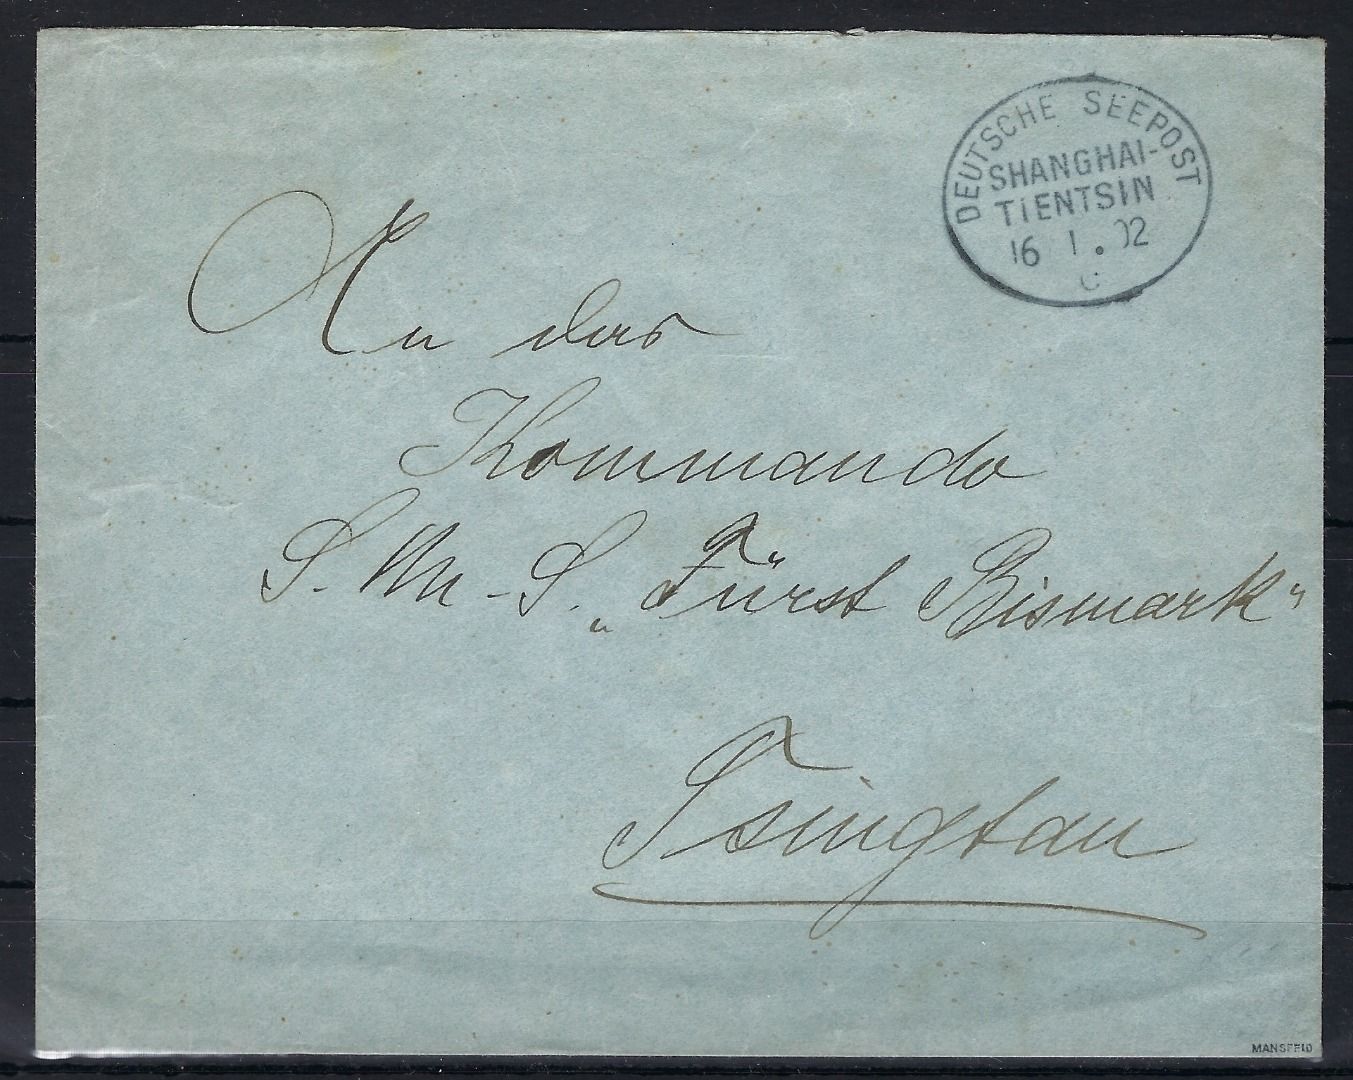 DEUTSCHE SEEPOST
SHANGHAI-
TIENTSIN
16 1 . 02
c
An das
Kommando
S. M. S. „Fürst Bismark“
Tsingtau
MANSFELD